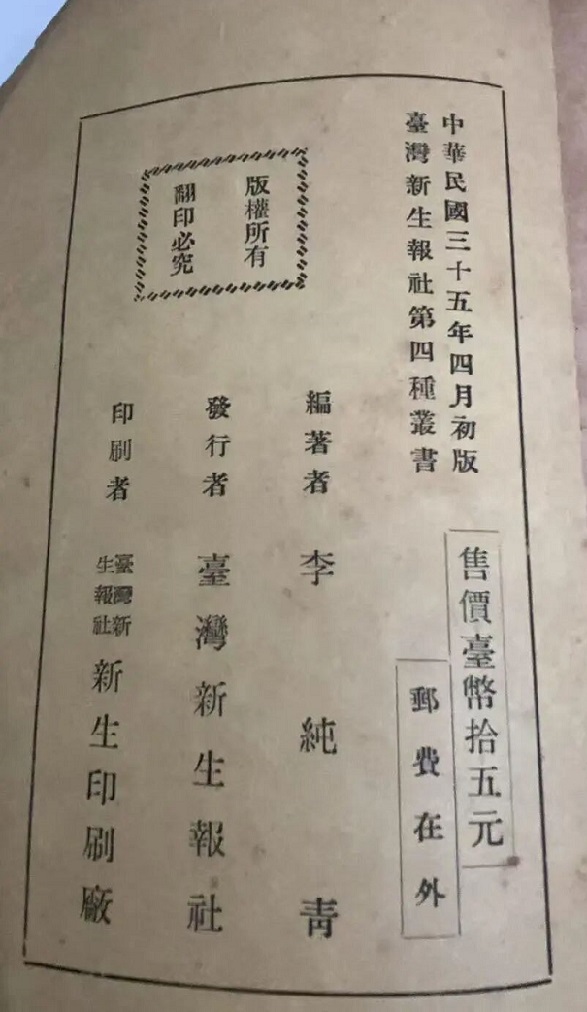 中華民國三十五年四月初版
臺灣新生報社第四種叢書
售價臺幣拾五元
郵費在外
版權所有
翻印必究
編著者 李純青
發行者 臺灣新生報社
印刷者 臺灣新生報社 新生印刷廠